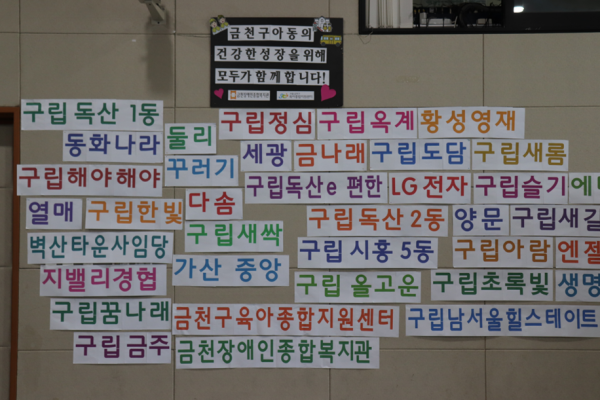 금천구아동의
건강한성장을위해
모두가함께합니다!
구립독산 1동
구립정심 구립옥계 황성영재
동화나라 둘리
세광 금나래 구립도담 구립새롬
구립해야해야 꾸러기
구립독산e 편한 LG전자 구립슬기
열매 구립한빛 다솜
구립독산 2동 양문 구립새길
벽산타운사임당 구립새싹
구립 시흥 5동 구립아람 엔젤
지밸리경협 가산 중앙
구립 올고운 구립초록빛 생명
구립꿈나래 금천구육아종합지원센터 구립남서울힐스테이트
구립 금주 금천장애인종합복지관